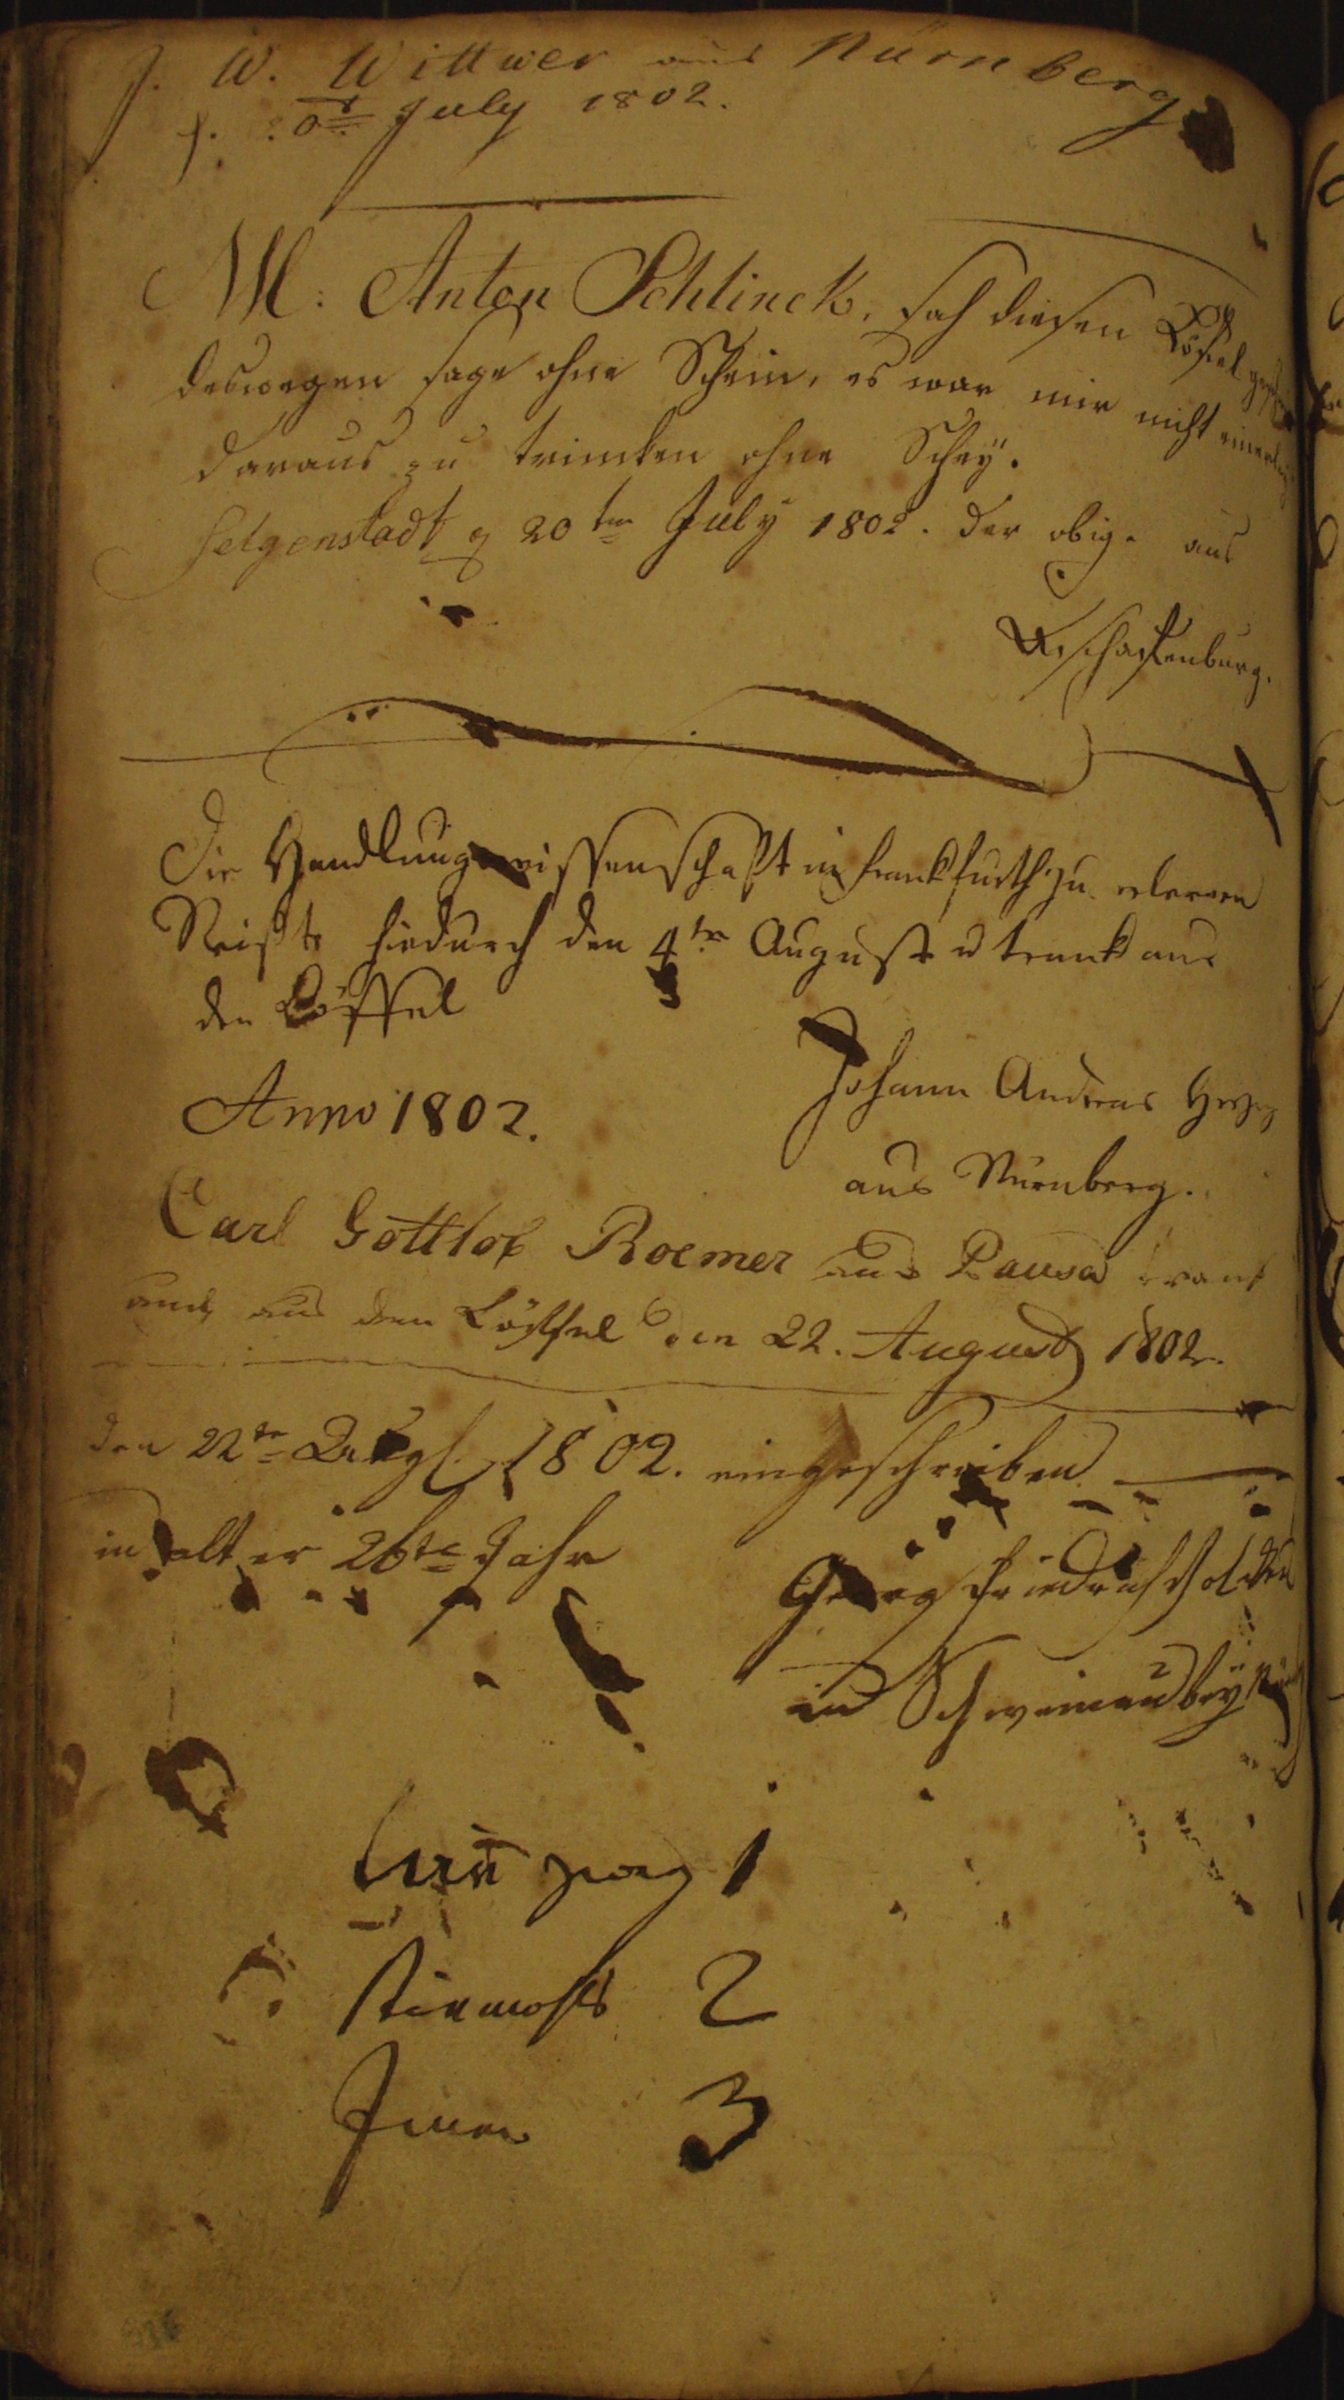 J. W. Wittwer aus Nürnberg
July 1802.
M. Anton Schlinck, sah diesen Löffel
deswegen sage ohne Schein, es war mir nicht einerley
daraus zu trincken ohne Schey.
Selgenstadt d 20ten July 1802. der obige aus
Aschaffenburg.
Die Handlungswissenschaft in Frankfurth zu erlernen
Reißte hiedurch den 4te August u trank aus
den Löffel
Anno 1802.
Johann Andreas
aus Nürnberg.
Carl Gottlob Roemer aus Pausa trank
auch aus dem Löffel den 22. August 1802.
den 22te 1802. eingeschrieben
in alter 26te Jahr
Georg Friedrich
in Schweinau bey
1
2
3